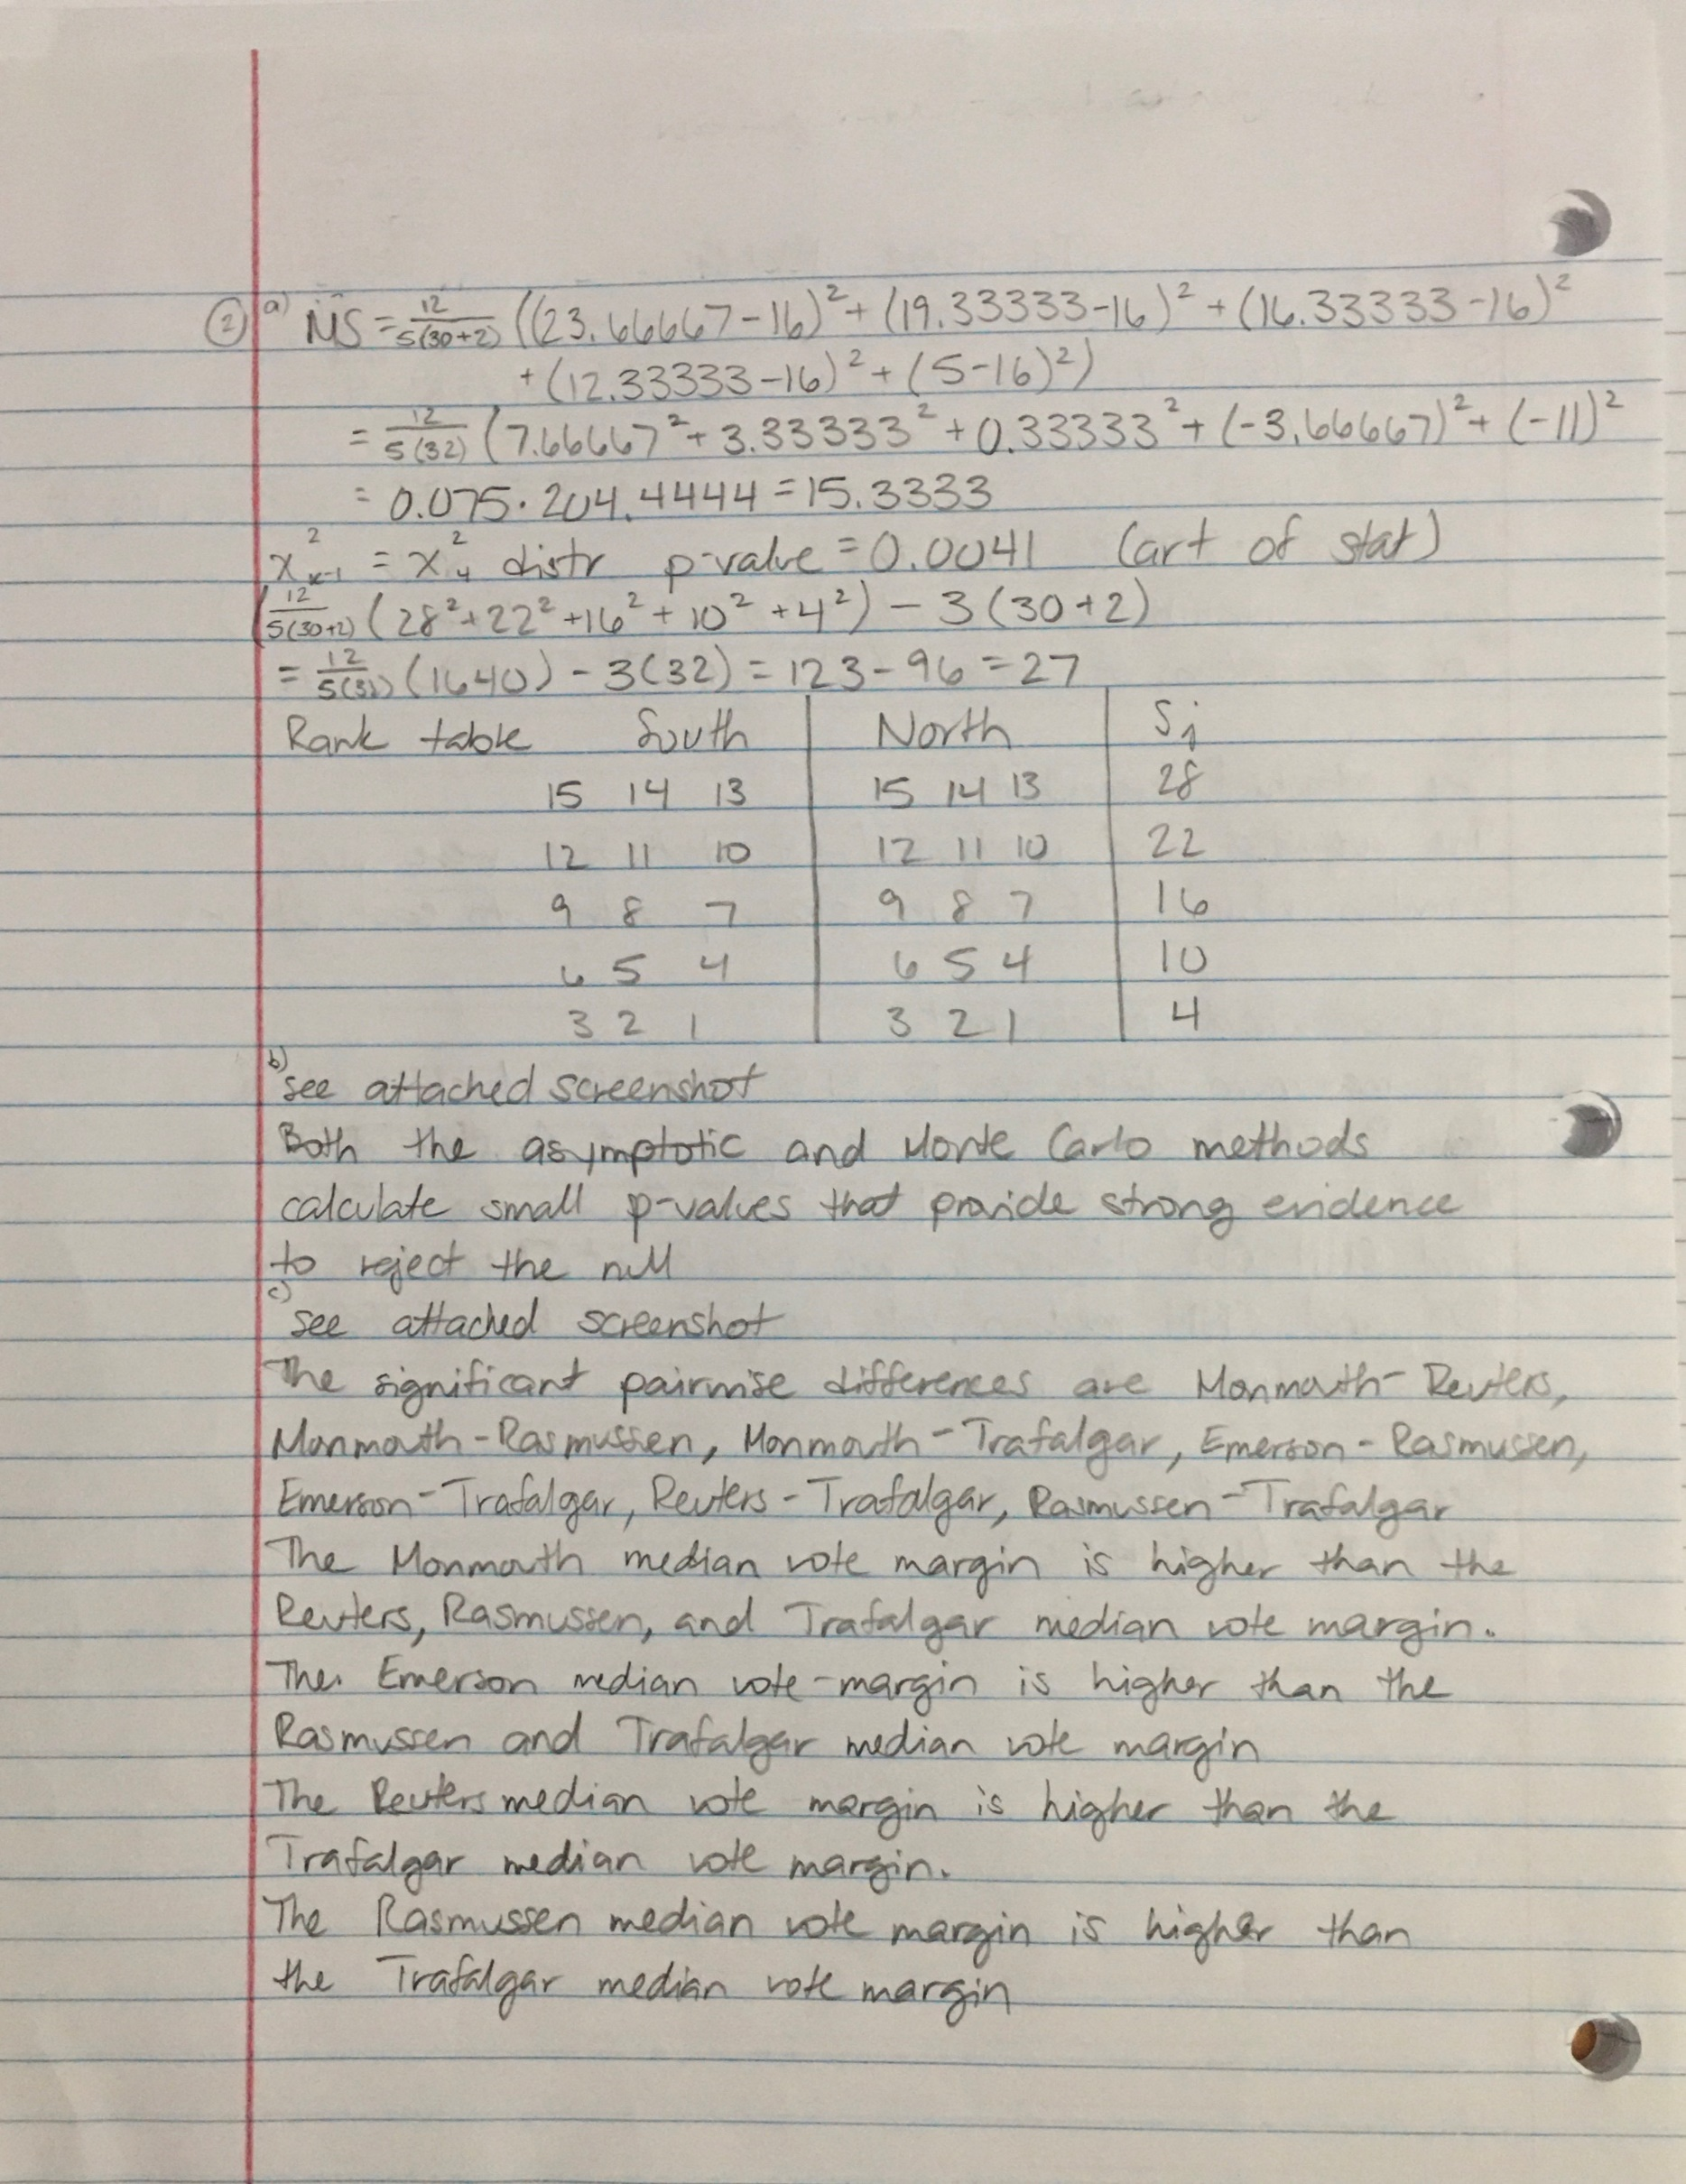 ② a) MS = 12/5(30+2) ((23.66667-16)² + (19.33333-16)² + (16.33333-16)²
+ (12.33333-16)² + (5-16)²)
= 12/5(32) (7.66667² + 3.33333² + 0.33333² + (-3.66667)² + (-11)²
= 0.075 · 204.4444 = 15.3333
X²ₖ₋₁ = X²₄ distr p-value = 0.0041 (art of stat)
(12/5(30+2) (28² + 22² + 16² + 10² + 4²) - 3(30+2)
= 12/5(32) (1640) - 3(32) = 123 - 96 = 27
Rank table South | North | Sj
15 14 13 | 15 14 13 | 28
12 11 10 | 12 11 10 | 22
9 8 7 | 9 8 7 | 16
6 5 4 | 6 5 4 | 10
3 2 1 | 3 2 1 | 4
b) see attached screenshot
Both the asymptotic and Monte Carlo methods
calculate small p-values that provide strong evidence
to reject the null
c) see attached screenshot
The significant pairwise differences are Monmouth-Reuters,
Monmouth-Rasmussen, Monmouth-Trafalgar, Emerson-Rasmussen,
Emerson-Trafalgar, Reuters-Trafalgar, Rasmussen-Trafalgar
The Monmouth median vote margin is higher than the
Reuters, Rasmussen, and Trafalgar median vote margin.
The Emerson median vote-margin is higher than the
Rasmussen and Trafalgar median vote margin
The Reuters median vote margin is higher than the
Trafalgar median vote margin.
The Rasmussen median vote margin is higher than
the Trafalgar median vote margin